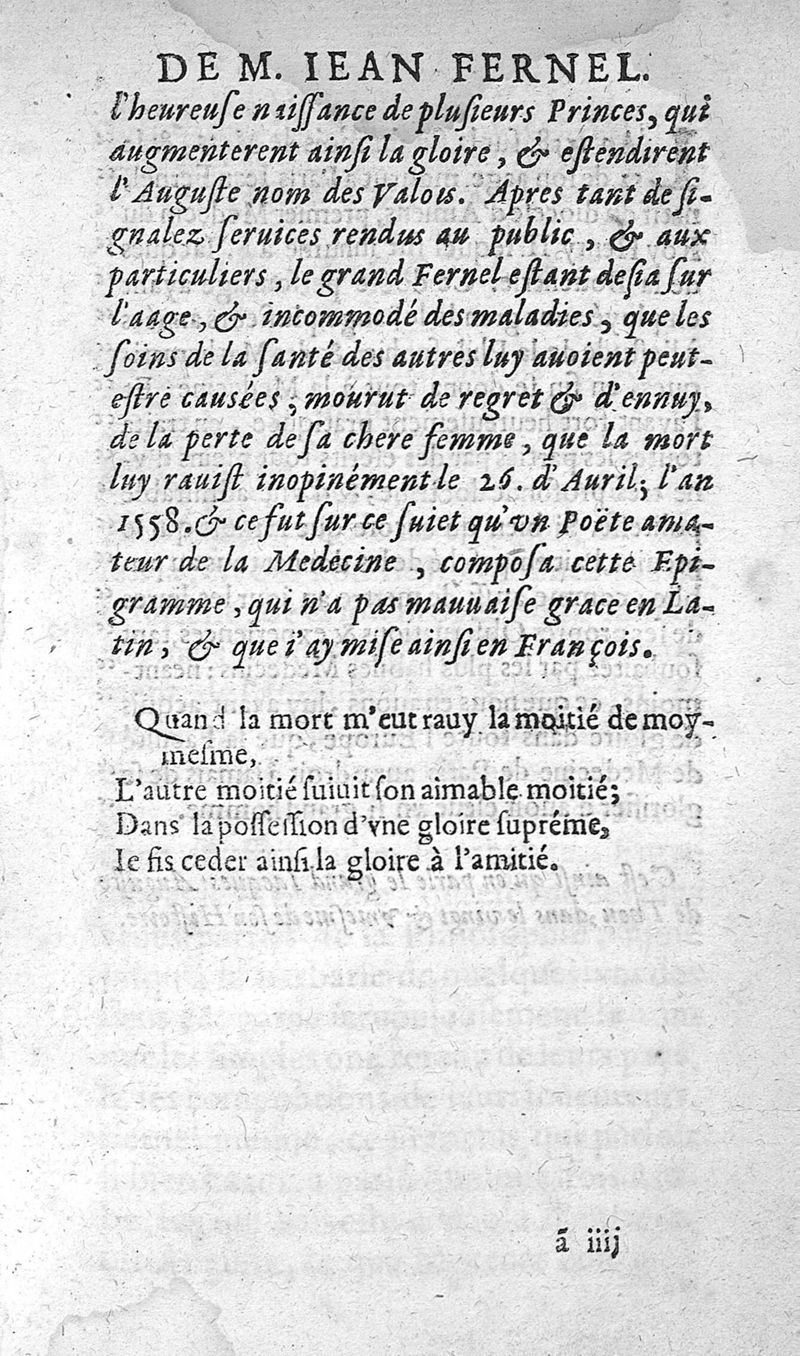 DE M. IEAN FERNEL.
l'heureuſe naiſſance de pluſieurs Princes, qui
augmenterent ainſi la gloire, & eſtendirent
l'Auguſte nom des Valois. Apres tant de ſi-
gnalez ſeruices rendus au public, & aux
particuliers, le grand Fernel eſtant deſia ſur
l'aage, & incommodé des maladies, que les
ſoins de la ſanté des autres luy auoient peut-
eſtre causées, mourut de regret & d'ennuy,
de la perte de ſa chere femme, que la mort
luy rauiſt inopinément le 26. d'Auril, l'an
1558. & ce fut ſur ce ſuiet qu'vn Poëte ama-
teur de la Medecine, compoſa cette Epi-
gramme, qui n'a pas mauuaiſe grace en La-
tin, & que i'ay miſe ainſi en François.
Quand la mort m'eut rauy la moitié de moy-
meſme,
L'autre moitié ſuiuit ſon aimable moitié;
Dans la poſſeſſion d'vne gloire ſupréme,
Ie fis ceder ainſi la gloire à l'amitié.
ã iiij